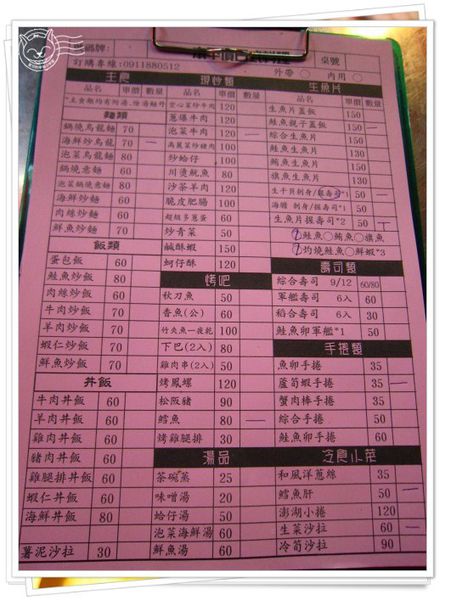 訂購專線:0911880512
桌號
外帶 內用
主食 現炒類 生魚片
品名 單價 數量 品名 單價 數量 品名 單價 數量
麵類
鍋燒烏龍麵 70
海鮮炒烏龍 80
泡菜烏龍麵 80
鍋燒意麵 60
泡菜鍋燒意麵 80
海鮮炒麵 60
肉絲炒麵 60
鮮魚炒麵 70
飯類
蛋包飯 60
鮭魚炒飯 80
肉絲炒飯 60
牛肉炒飯 70
羊肉炒飯 70
蝦仁炒飯 70
鮮魚炒飯 70
丼飯
牛肉丼飯 60
羊肉丼飯 60
雞肉丼飯 60
豬肉丼飯 60
雞腿排丼飯 60
蝦仁丼飯 60
海鮮丼飯 80
薯泥沙拉 30
空心菜炒牛肉 120
蔥爆牛肉 120
泡菜牛肉 120
高麗菜炒豬肉 100
炒蛤仔 100
川燙魷魚 80
沙茶羊肉 120
脆皮肥腸 100
超級多蔥蛋 60
炒青菜 50
鹹酥蝦 150
蚵仔酥 120
烤吧
秋刀魚 50
香魚(公) 60
竹夾魚一夜乾 100
下巴(2入) 80
雞肉串(2入) 50
烤鳳螺 120
松阪豬 90
鱈魚 80
烤雞腿排 30
湯品
茶碗蒸 25
味噌湯 20
蛤仔湯 50
泡菜海鮮湯 60
鮮魚湯 60
生魚片蓋飯 150
鮭魚親子蓋飯 150
綜合生魚片 150
鮭魚生魚片 150
鮪魚生魚片 130
旗魚生魚片 130
生干貝刺身/握壽司*1 50
海膽 刺身/握壽司*1 50
生魚片握壽司*2 50
鮭魚○鮪魚○旗魚
灼燒鮭魚鮮蝦*3
壽司類
綜合壽司 9/12 60/80
軍艦壽司 6入 60
稻合壽司 6入 30
鮭魚卵軍艦*1 50
手捲類
魚卵手捲 35
蘆筍蝦手捲 35
蟹肉棒手捲 35
綜合手捲 50
鮭魚卵手捲 60
冷食小菜
和風洋蔥絲 35
鱈魚肝 50
澎湖小捲 120
生菜沙拉 60
冷筍沙拉 90